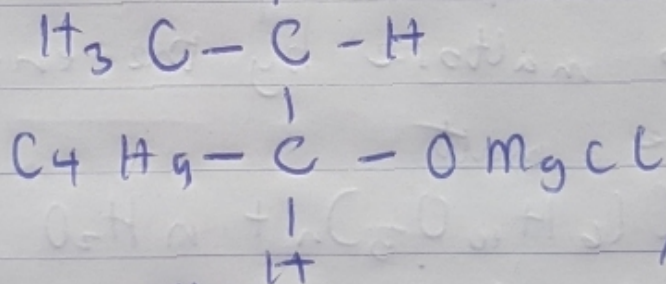 H3 C - C - H
|
C4 H9 - C - O Mg Cl
|
H